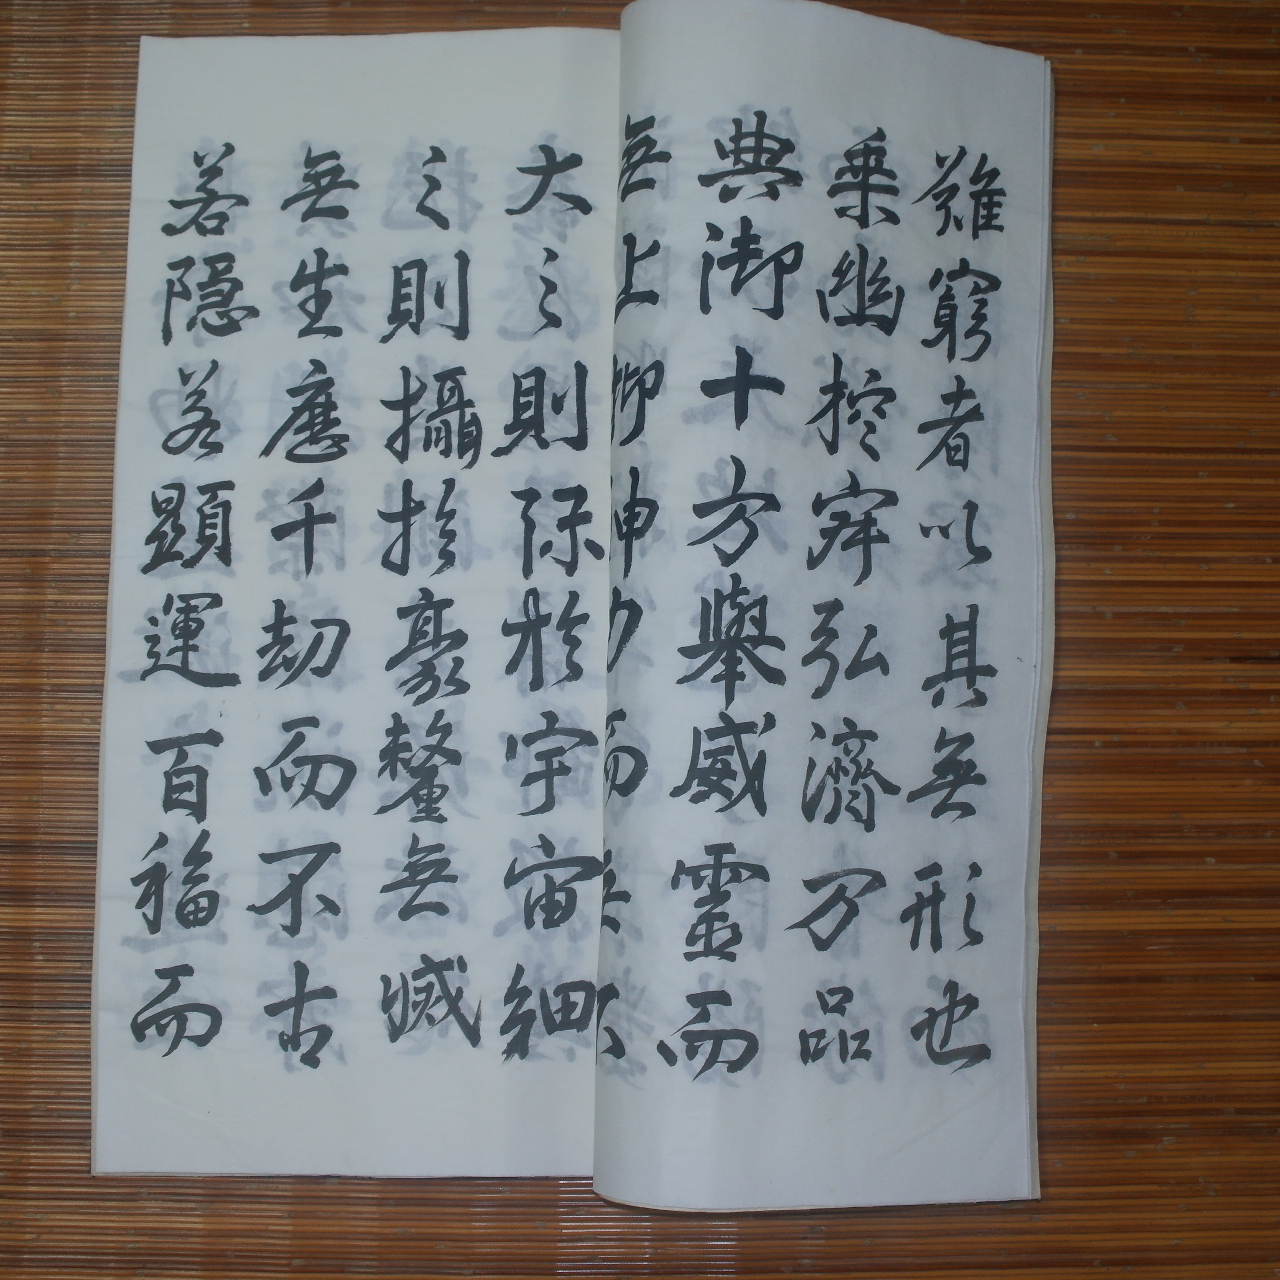 難窮者以其無形也
乗幽控寂弘濟万品
典御十方舉威靈而
無上抑神力而無下
大之則弥於宇宙細
之則攝於豪釐無滅
無生歷千劫而不古
若隱若顯運百福而